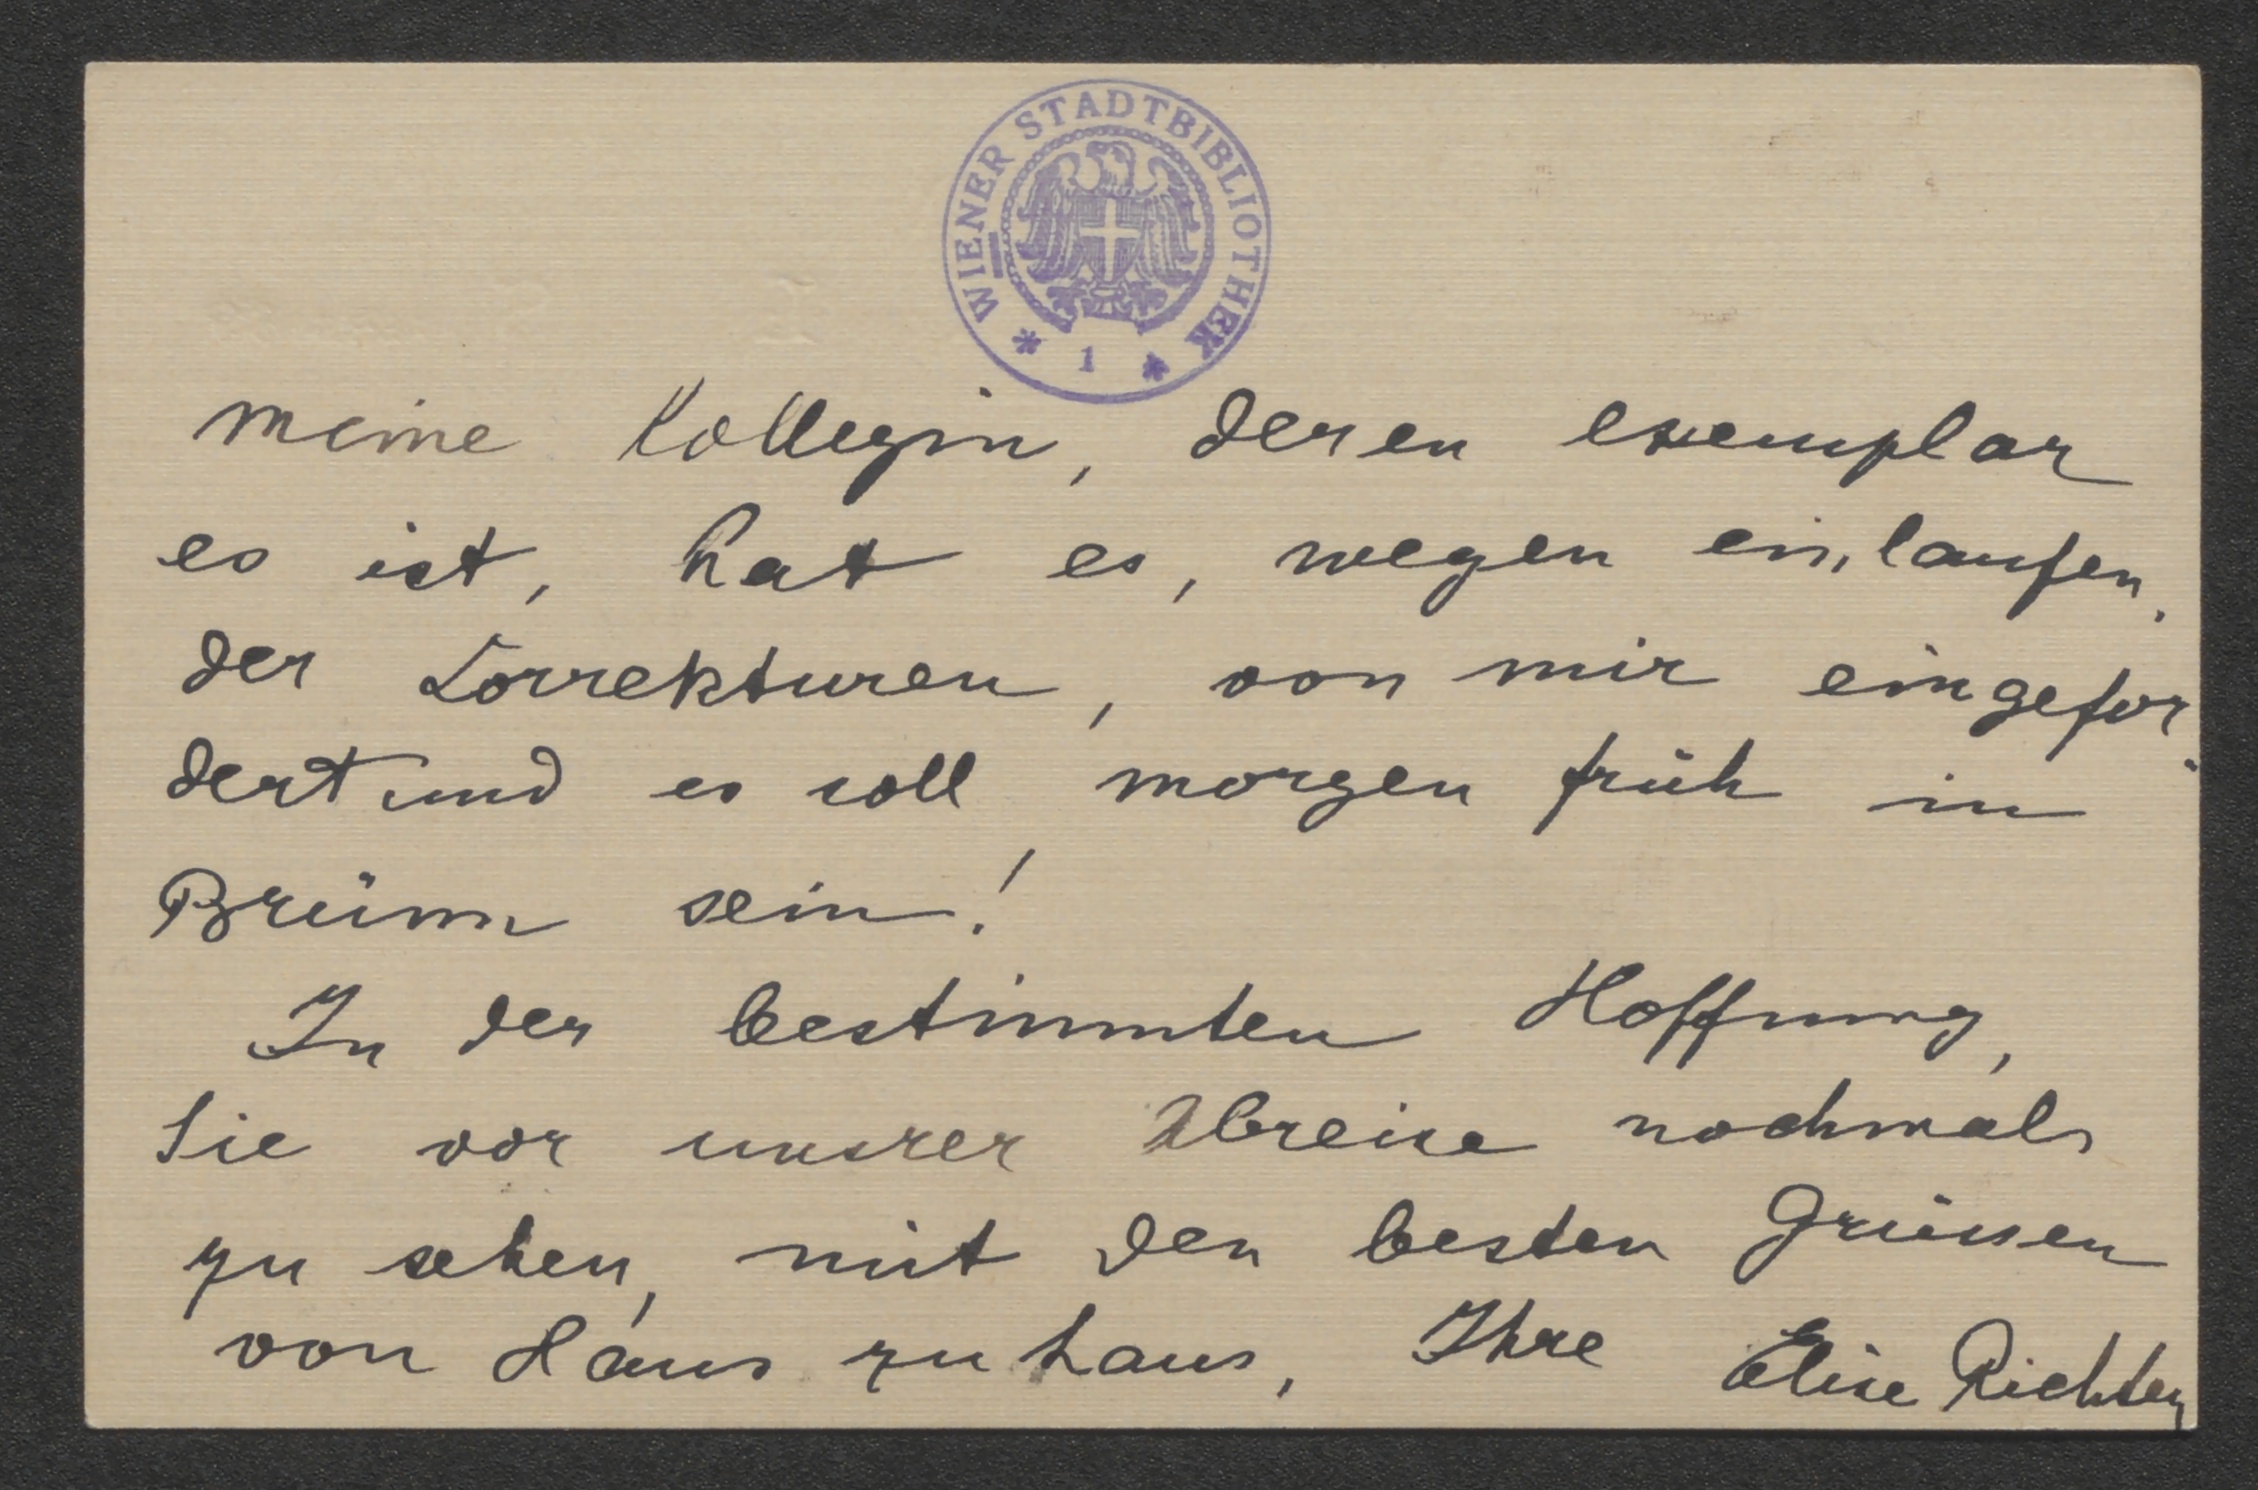 WIENER STADTBIBLIOTHEK
* 1 *
meine Kollegin, deren exemplar
es ist, hat es, wegen einlaufen-
der Correkturen, von mir eingefor-
dert und es soll morgen früh in
Brünn sein!
In der bestimmten Hoffnung,
Sie vor unsrer Abreise nochmals
zu sehen, mit den besten Grüssen
von Haus zu haus, Ihre Elise Richter